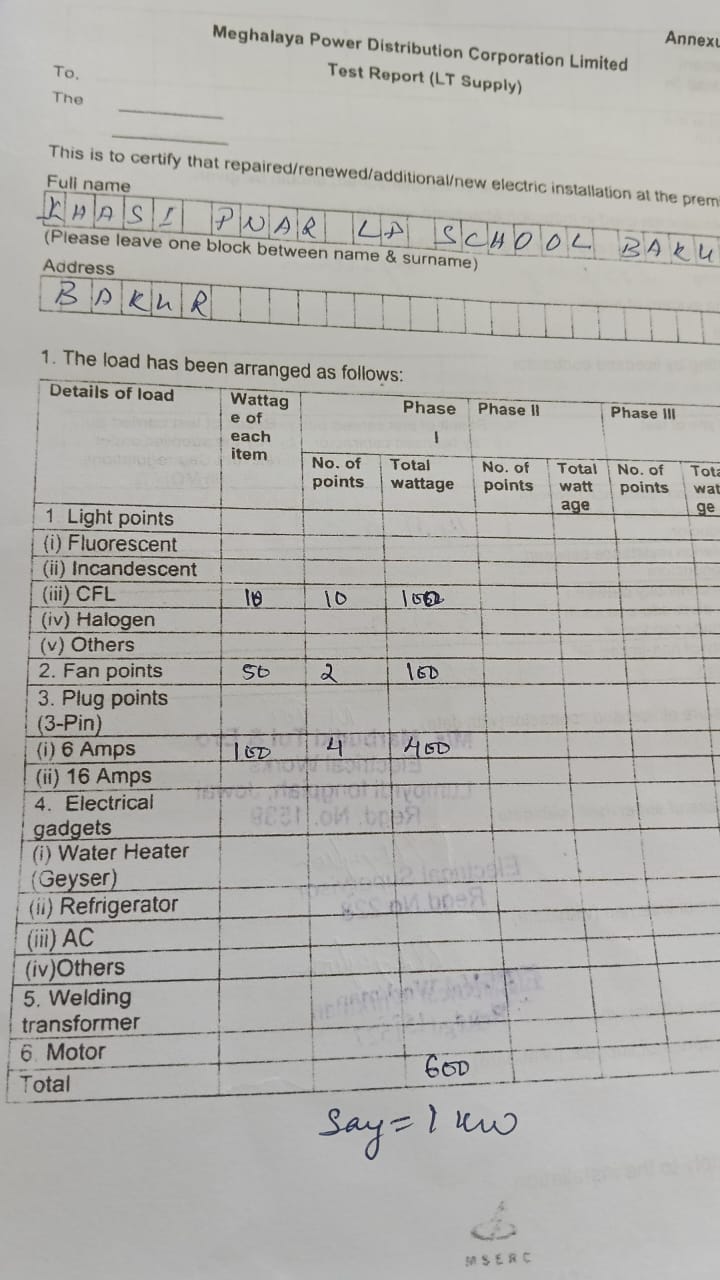 Annexu
Meghalaya Power Distribution Corporation Limited
Test Report (LT Supply)
To,
The
This is to certify that repaired/renewed/additional/new electric installation at the prem
Full name
KHASI PNAR LP SCHOOL BAKU
(Please leave one block between name & surname)
Address
BAKUR
1. The load has been arranged as follows:
Details of load Wattag e of each item Phase I Phase II Phase III
No. of points Total wattage No. of points Total watt age No. of points Tota wat ge
1 Light points
(i) Fluorescent
(ii) Incandescent
(iii) CFL 10 10 100
(iv) Halogen
(v) Others
2. Fan points 50 2 100
3. Plug points
(3-Pin)
(i) 6 Amps 100 4 400
(ii) 16 Amps
4. Electrical
gadgets
(i) Water Heater
(Geyser)
(ii) Refrigerator
(iii) AC
(iv)Others
5. Welding
transformer
6. Motor
Total 600
Say = 1 kw
MSERC